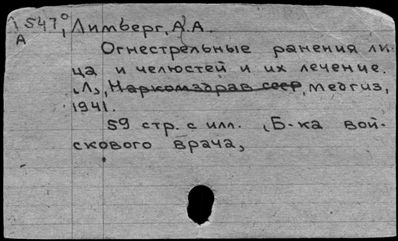 1547° Лимберг, А.А.
А
Огнестрельные ранения ли-
ца и челюстей и их лечение.
Л., Наркомздрав ссср, медгиз,
1941.
59 стр. с илл. (Б-ка вой-
скового врача)